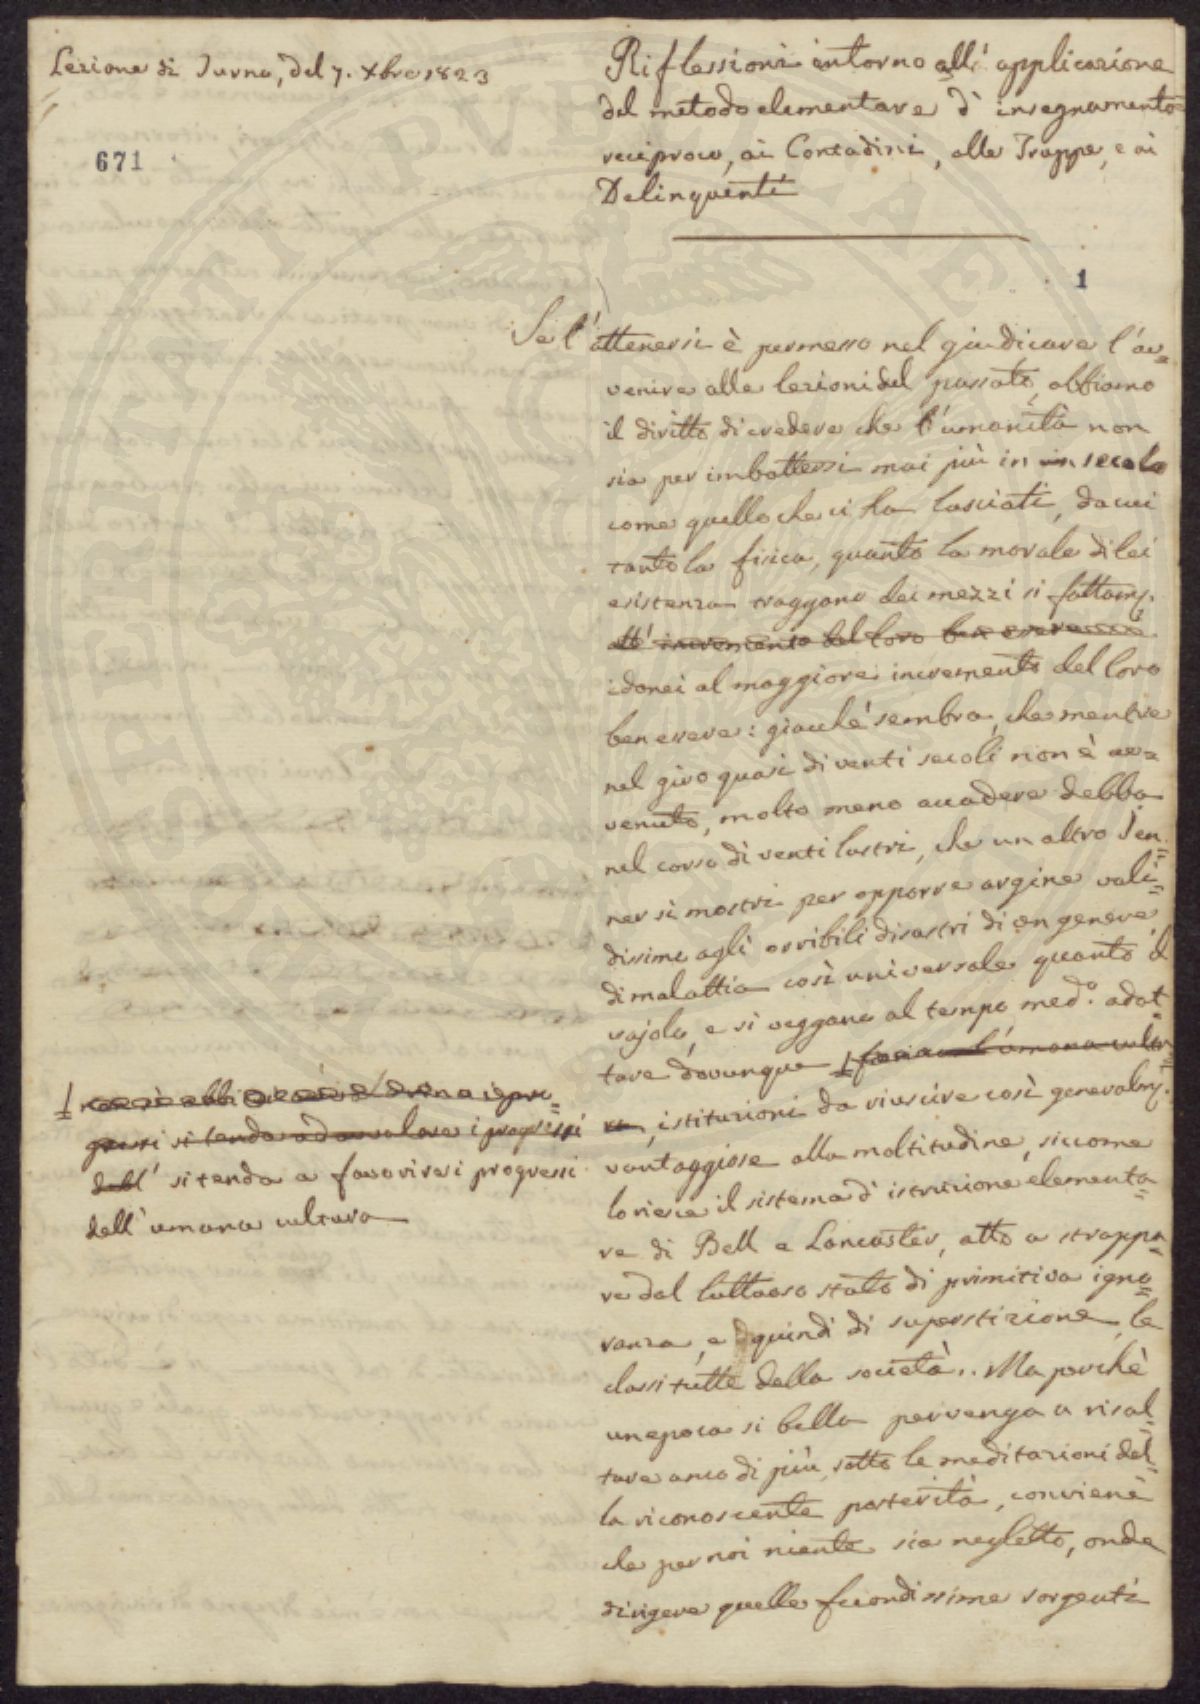 Lezione di Turno, del 7. Xbre 1823
671
Riflessioni intorno all' applicazione
del metodo elementare d' insegnamento
reciproco, ai Contadini, alle Truppe, e ai
Delinquenti
1
Se l' attenersi è permesso nel giudicare l' av=
venire alle lezioni del passato, abbiamo
il diritto di credere che l' umanità non
sia per imbattersi mai più in un secolo
come quello che ci ha lasciati, da cui
tanto la fisica, quanto la morale di lei
esistenza traggano dei mezzi sì fattam.
all' incremento del loro ben essere
idonei al maggiore incremento del loro
ben essere: giacchè sembra, che mentre
nel giro quasi di venti secoli non è av=
venuto, molto meno accadere debba
nel corso di venti lustri, che un altro Jen=
ner si mostri per opporre argine vali=
dissimo agli orribili disastri di un genere
di malattia così universale quanto il
vajolo, e si veggano al tempo med.º adot=
tare dovunque l' umana cultu=
ra, istituzioni da riuscire così generalm.
vantaggiose alla moltitudine, siccome
lo riesce il sistema d' istruzione elementa=
re di Bell e Lancaster, atto a strappa=
re dal luttuoso stato di primitiva igno=
ranza, e quindi di superstizione, le
classi tutte della società.. Ma perchè
un epoca sì bella pervenga a risal=
tare anco di più, sotto le meditazioni del=
la riconoscente posterità, conviene
che per noi niente sia negletto, onde
dirigere quelle fecondissime sorgenti
si tenda ad avvalorare i progressi
dell' si tenda a favorire i progressi
dell' umana cultura
SOCIETATI PVBLICAE PROSPERITATI